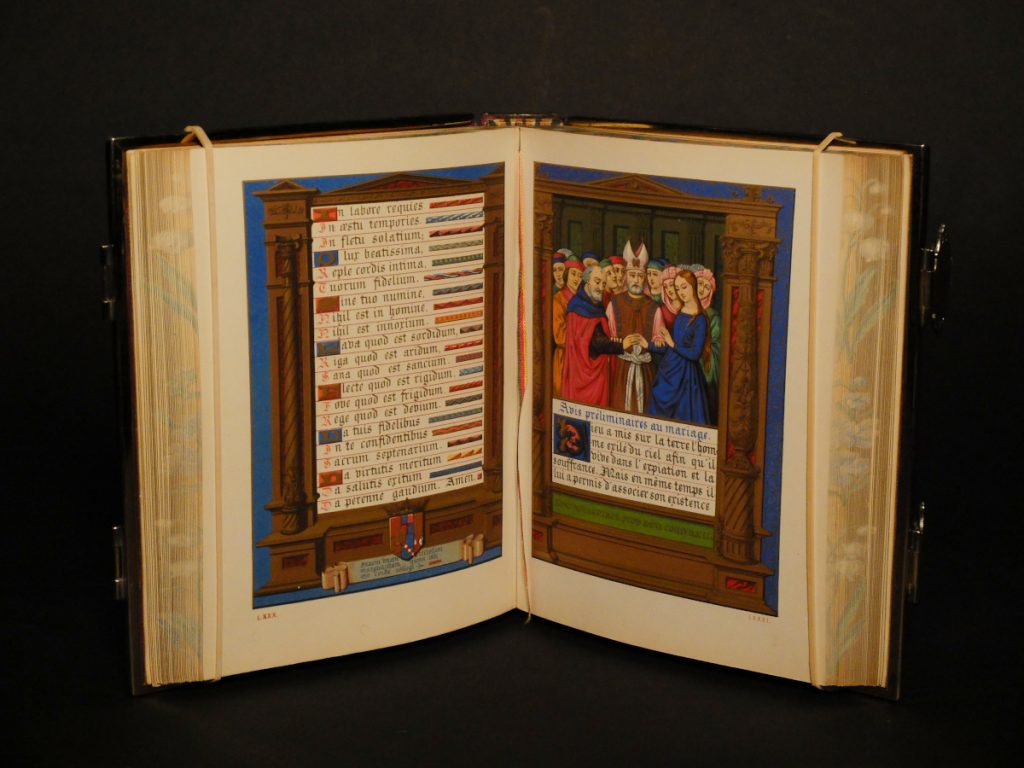 In labore requies
In æstu tempories
In fletu solatium,
O lux beatissima,
Reple cordis intima,
Tuorum fidelium.
Sine tuo numine,
Nihil est in homine,
Nihil est innoxium.
Lava quod est sordidum,
Riga quod est aridum,
Sana quod est sancium
Flecte quod est rigidum,
Fove quod est frigidum,
Rege quod est devium.
Da tuis fidelibus
In te confidentibus
Sacrum septenarium.
Da virtutis meritum
Da salutis exitum
Da perenne gaudium, Amen.
LXXX.
Avis preliminaires au mariage.
Dieu a mis sur la terre l'hom-
me exilé du ciel afin qu'il
vive dans l'expiation et la
souffrance. Mais en même temps il
lui a permis d'associer son existence
LXXXI.